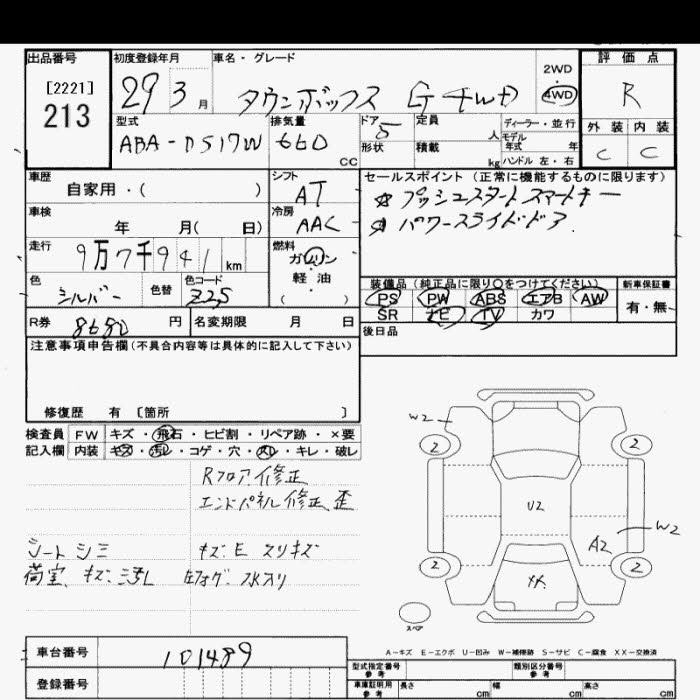 出品番号 初度登録年月 車名・グレード 2WD 評価点
[2221] 29 3月 タウンボックス G 4WD 4WD R
213
型式 排気量 ドア 定員 ディーラー・並行 外装 内装
ABA-DS17W 660 CC 5 人 モデル年式 年 C C
形状 積載 kg ハンドル 左・右
車歴 シフト セールスポイント (正常に機能するものに限ります)
自家用・( ) AT ☆ プッシュスタート スマートキー
車検 冷房 ☆ パワースライドドア
年 月( 日) AAC
走行 燃料
9万7千941 km ガソリン・軽油
( )
色 色替 色コード 装備品 (純正品に限り○をつけてください) 新車保証書
シルバー Z2S PS PW ABS エアB AW 有・無
SR ナビ TV カワ
R券 8680 円 名変期限 月 日 後日品
注意事項申告欄 (不具合内容等は具体的に記入して下さい)
修復歴 有 〔箇所 〕
検査員 FW キズ・飛石・ヒビ割・リペア跡・×要
記入欄 内装 キズ・汚レ・コゲ・穴・スレ・キレ・破レ
Rフロア修正
エンドパネル修正、歪
シートシミ キズ・E スリキズ
荷室、キズ・汚レ 左フォグ・水入り
W2
2 2
U2
A2 W2
2 2
XX
スペア
A-キズ E-エクボ U-凹み W-補修跡 S-サビ C-腐食 XX-交換済
車台番号 101489
登録番号
型式指定番号 参考 類別区分番号 参考
車庫証明用 参考 長さ cm 幅 cm 高さ cm